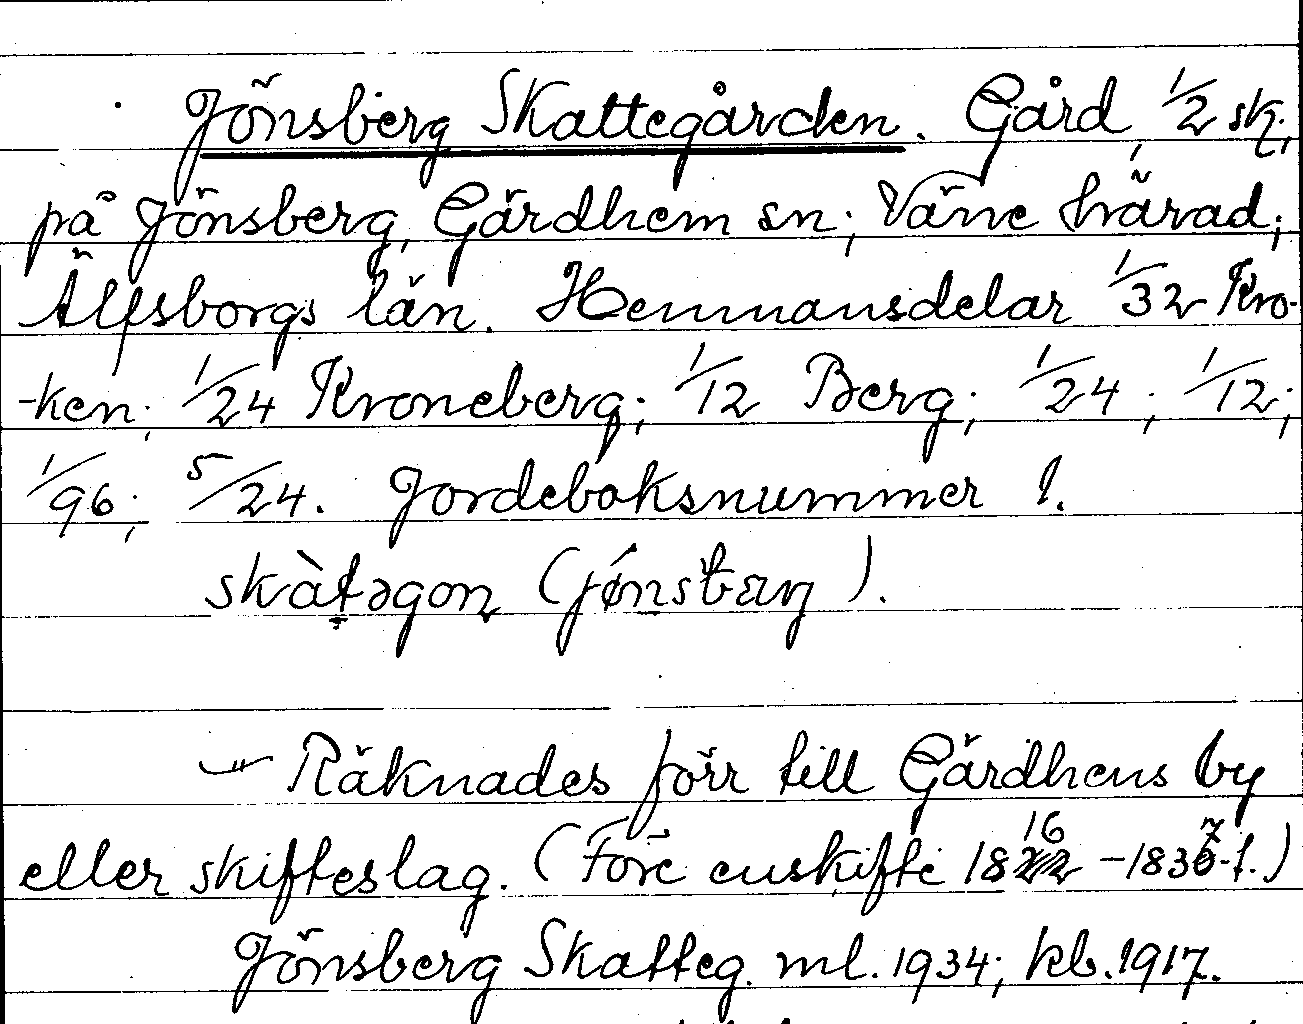 Jönsberg Skattegården. Gård, 1/2 sk;
på Jönsberg, Gärdhem sn; Väne härad;
Älfsborgs län. Hemmansdelar 1/32 Kro-
-ken; 1/24 Kroneberg; 1/12 Berg; 1/24; 1/12;
1/96; 5/24. Jordeboksnummer 1.
skàtəgon (jǿnsbærg).
Räknades förr till Gärdhems by
eller skifteslag. (Före enskifte 1816 -1837-t.)
Jönsberg Skatteg. ml. 1934; kb. 1917.